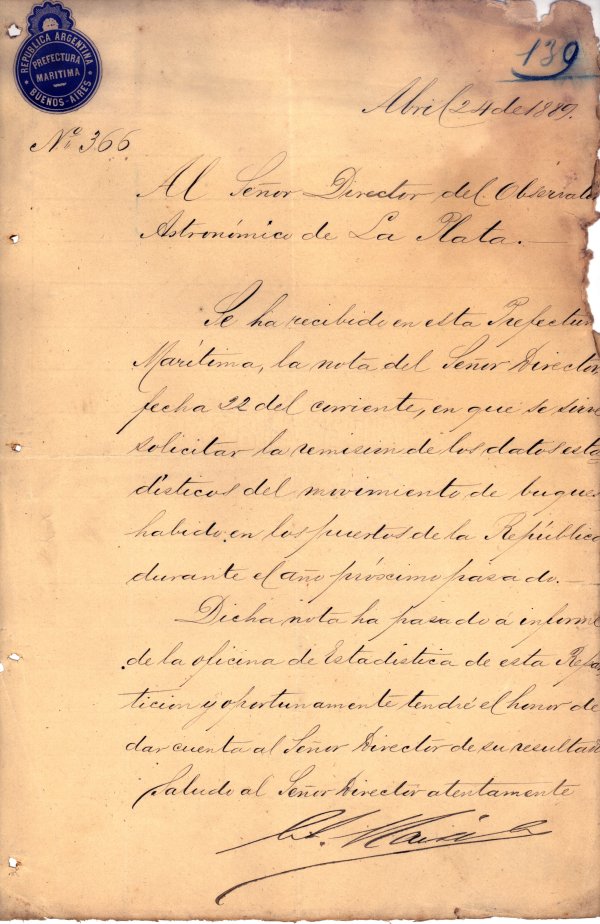 REPUBLICA ARGENTINA
PREFECTURA
MARITIMA
BUENOS-AIRES
139
Abril 24 de 1889.
Nº 366
Al Señor Director del Observato
Astronómico de La Plata.—
Se ha recibido en esta Prefectura
Marítima, la nota del Señor Director,
fecha 22 del corriente, en que se sirve
solicitar la remision de los datos esta
dísticos del movimiento de buques
habido en los puertos de la República
durante el año próximo pasado.—
Dicha nota ha pasado á informe
de la oficina de Estadística de esta Repar
ticion y oportunamente tendré el honor de
dar cuenta al Señor Director de su resultado
Saludo al Señor Director atentamente